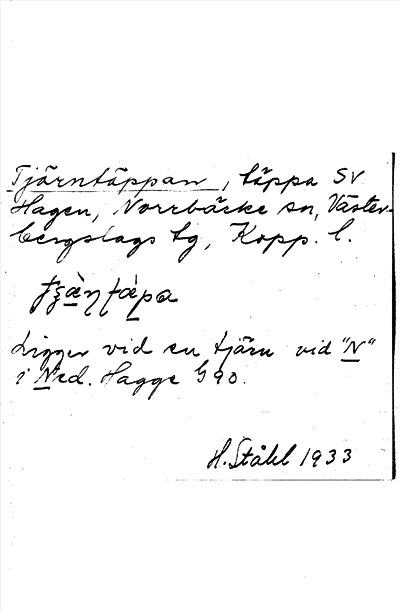 Tjärntäppan, täppa SV
Hagen, Norrbärke sn, Väster-
bergslags tg, Kopp. l.
Ligger vid en tjärn vid "N"
i Ned. Hagge G 90.
H. Ståhl 1933